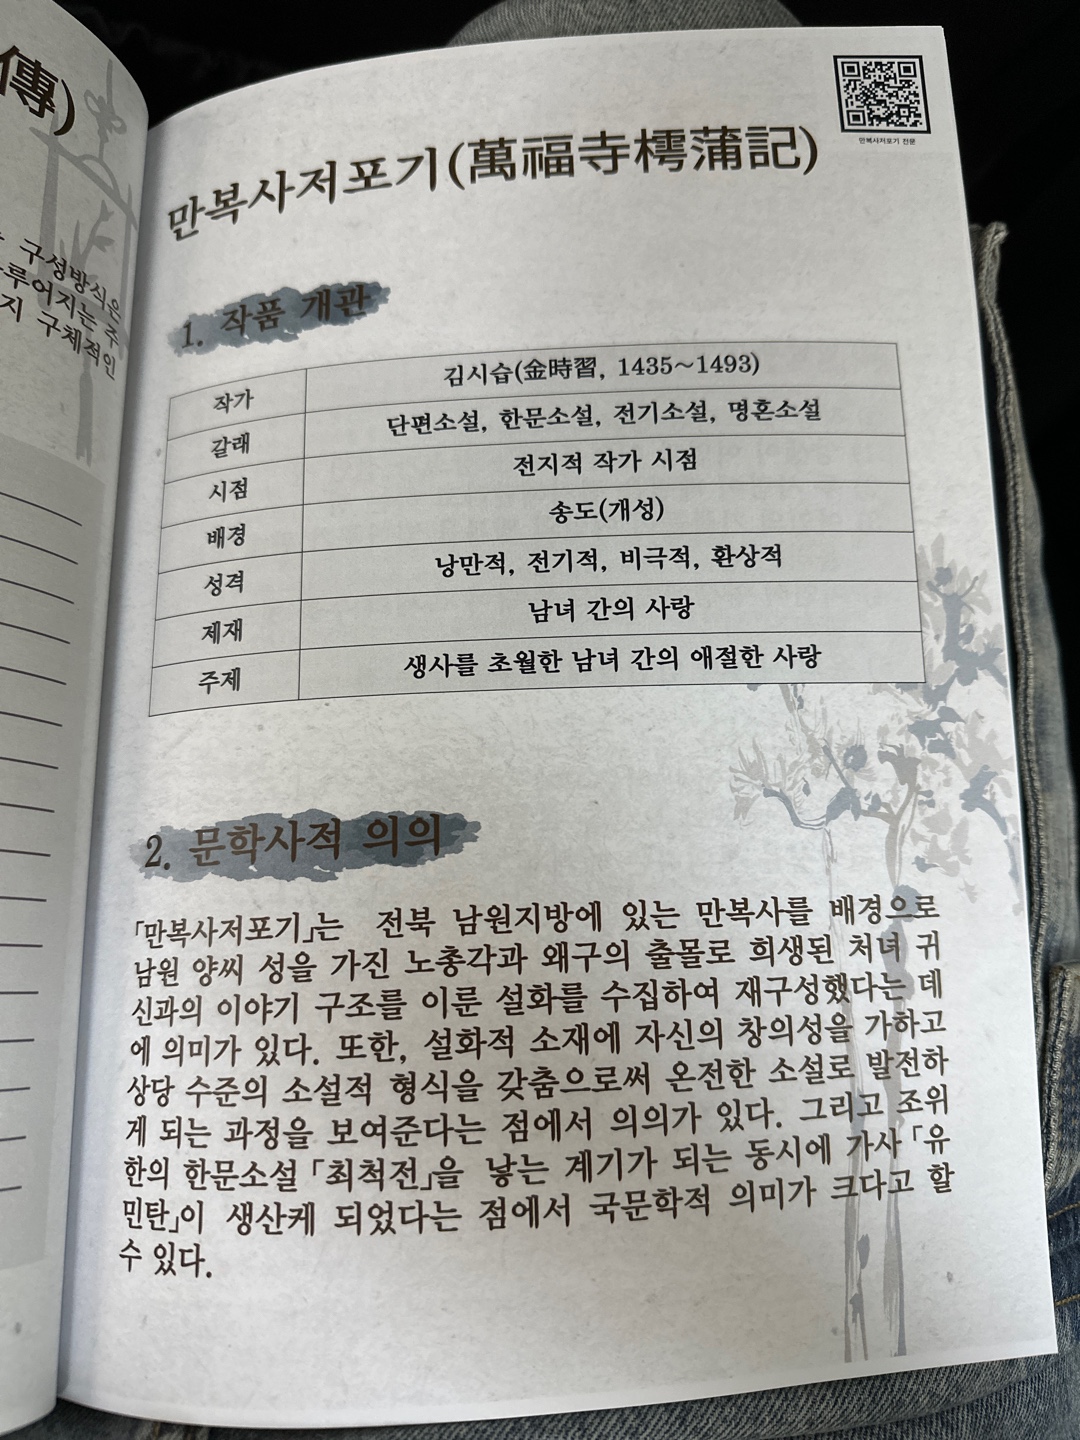 傳)
구성방식은
루어지는 주
지 구체적인
만복사저포기 전문
만복사저포기(萬福寺樗蒲記)
1. 작품 개관
작가 김시습(金時習, 1435~1493)
갈래 단편소설, 한문소설, 전기소설, 명혼소설
시점 전지적 작가 시점
배경 송도(개성)
성격 낭만적, 전기적, 비극적, 환상적
제재 남녀 간의 사랑
주제 생사를 초월한 남녀 간의 애절한 사랑
2. 문학사적 의의
「만복사저포기」는 전북 남원지방에 있는 만복사를 배경으로
남원 양씨 성을 가진 노총각과 왜구의 출몰로 희생된 처녀 귀
신과의 이야기 구조를 이룬 설화를 수집하여 재구성했다는 데
에 의미가 있다. 또한, 설화적 소재에 자신의 창의성을 가하고
상당 수준의 소설적 형식을 갖춤으로써 온전한 소설로 발전하
게 되는 과정을 보여준다는 점에서 의의가 있다. 그리고 조위
한의 한문소설 「최척전」을 낳는 계기가 되는 동시에 가사 「유
민탄」이 생산케 되었다는 점에서 국문학적 의미가 크다고 할
수 있다.